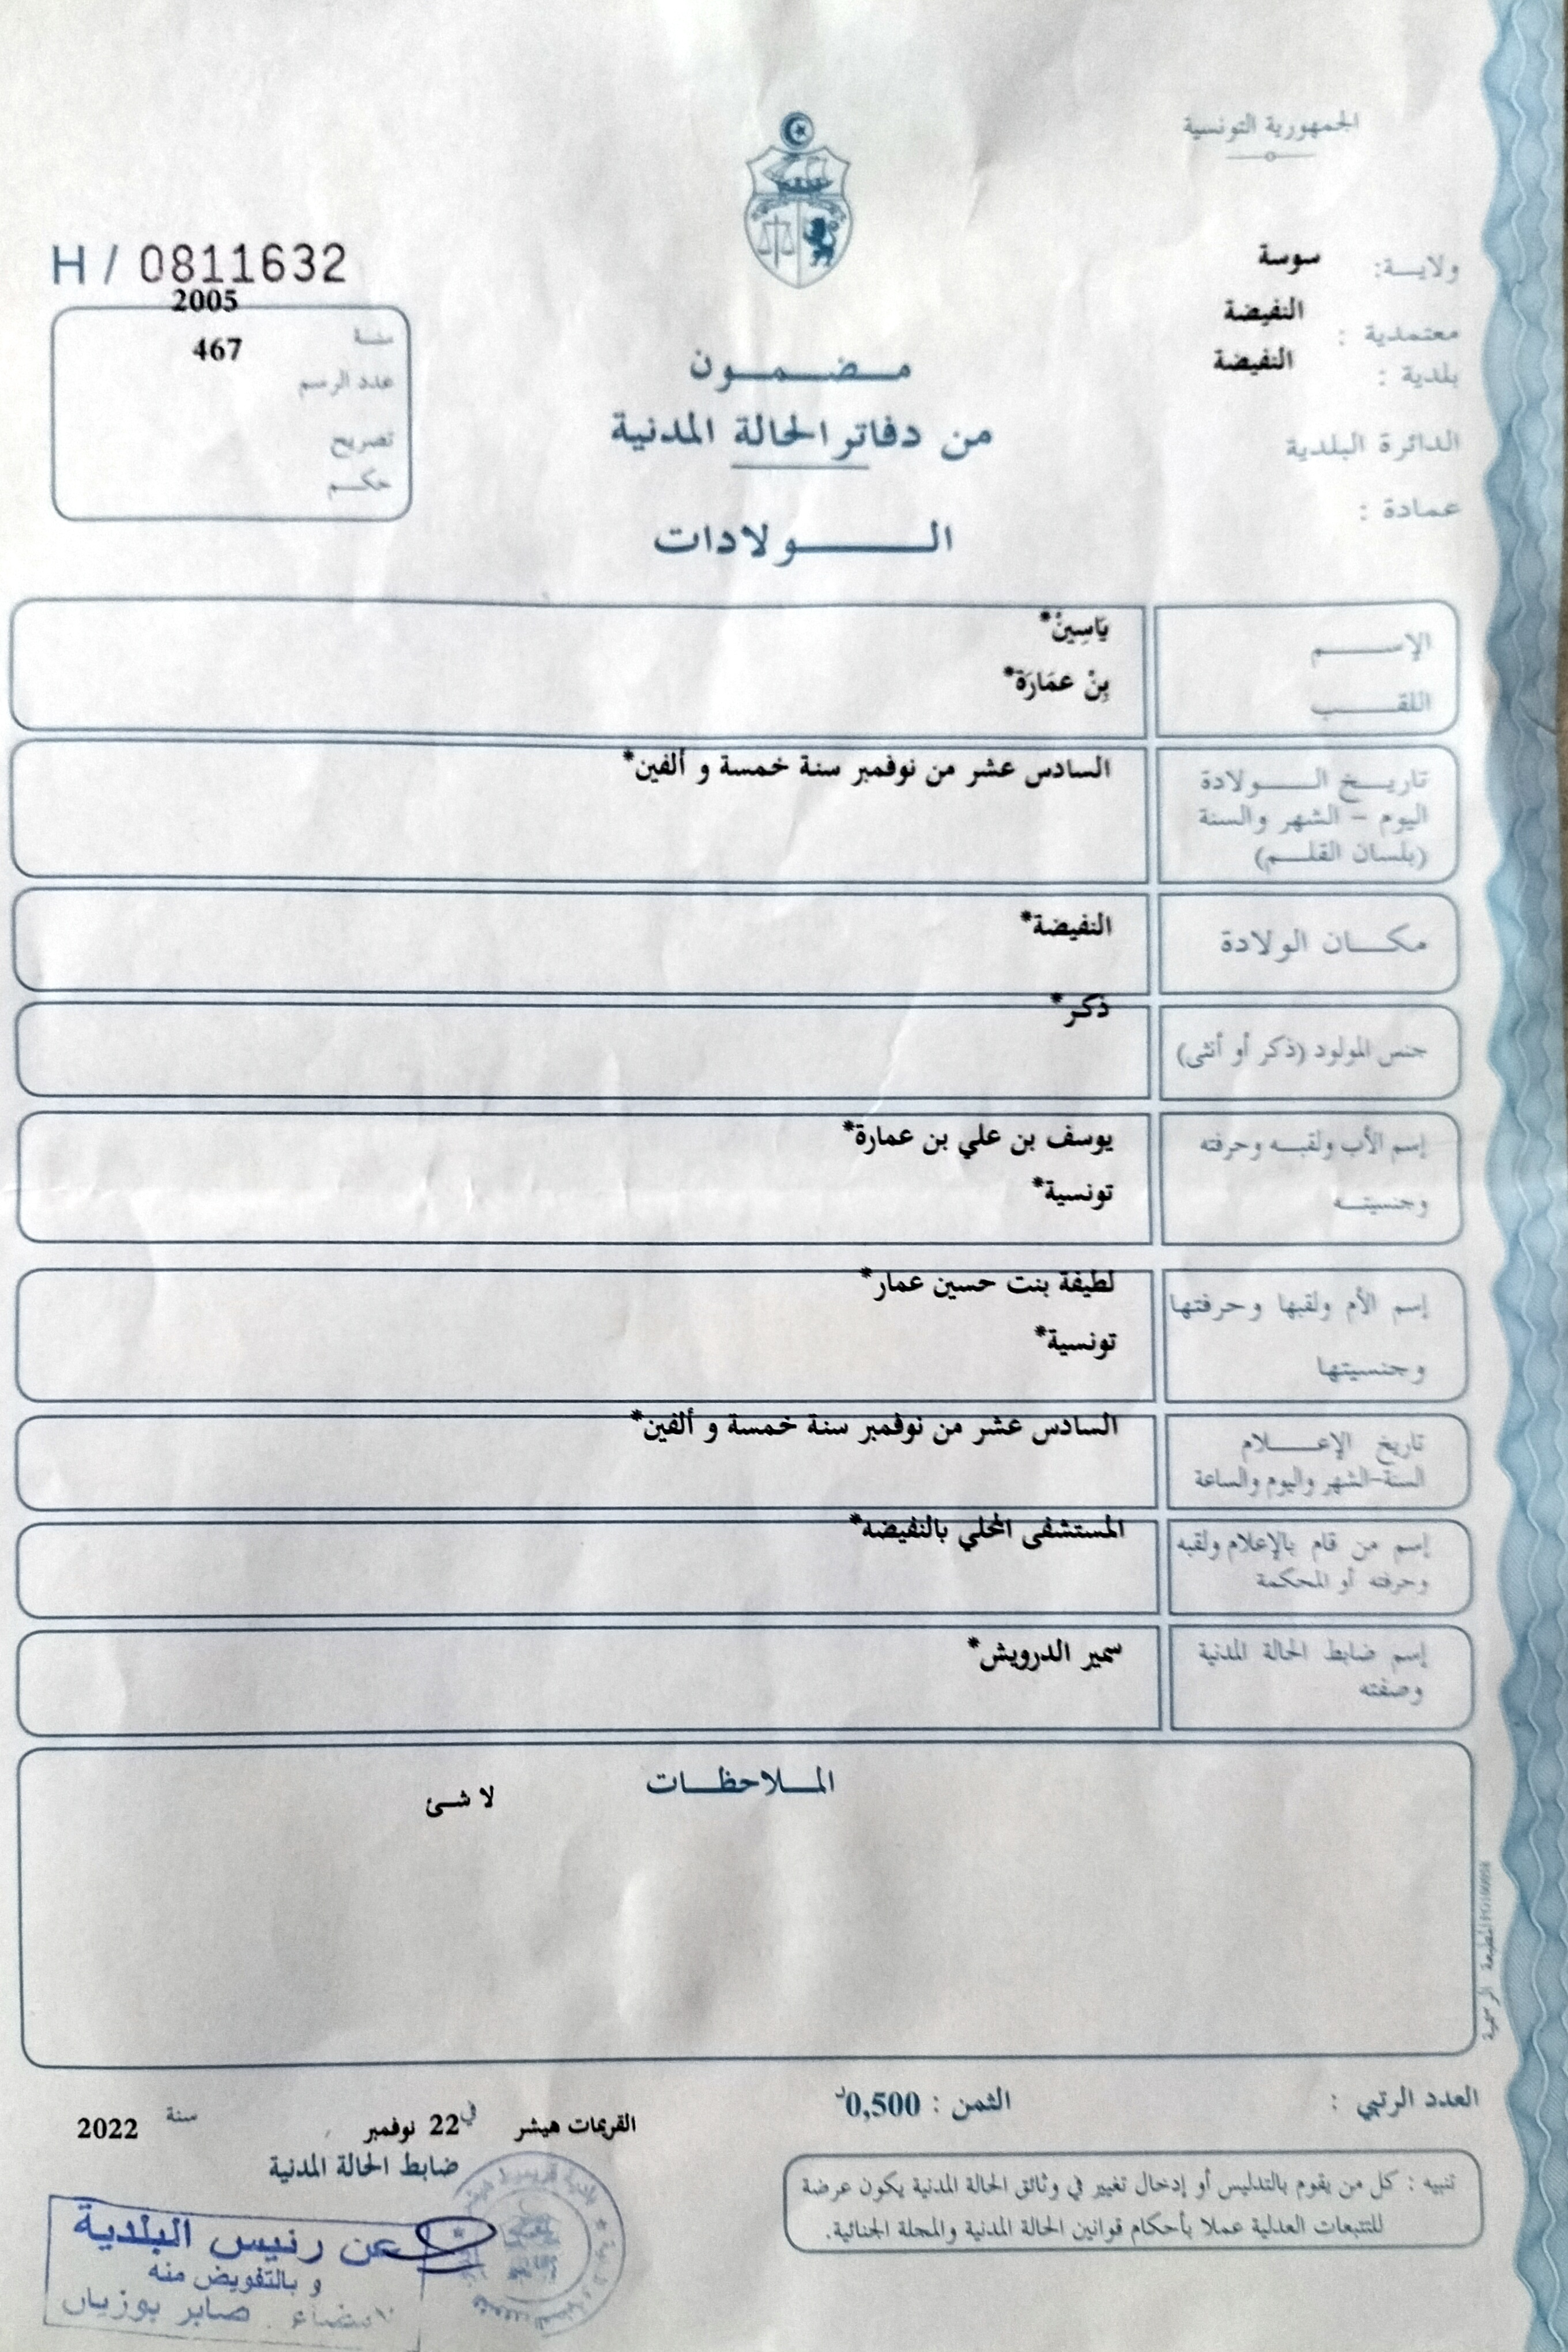 الجمهورية التونسية
ولايــة: سوسة
معتمدية : النفيضة
بلدية : النفيضة
الدائرة البلدية
عمادة :
H / 0811632
2005
سنة
467
عدد الرسم
تصريح
حكم
مـضـمـون
من دفاتر الحالة المدنية
الـولادات
الإسـم
يَاسِينْ*
اللقـب
بِنْ عمَارَة*
تاريـخ الـولادة
اليوم - الشهر والسنة
(بلسان القلـم)
السادس عشر من نوفمبر سنة خمسة و ألفين*
مكـان الولادة
النفيضة*
جنس المولود (ذكر أو أنثى)
ذكر*
إسم الأب ولقبـه وحرفته
يوسف بن علي بن عمارة*
وجنسيتـه
تونسية*
إسم الأم ولقبها وحرفتها
لطيفة بنت حسين عمار*
وجنسيتها
تونسية*
تاريخ الإعـلام
السنة-الشهر واليوم والساعة
السادس عشر من نوفمبر سنة خمسة و ألفين*
إسم من قام بالإعلام ولقبه
وحرفته أو المحكمة
المستشفى المحلي بالنفيضه*
إسم ضابط الحالة المدنية
وصفته
سمير الدرويش*
المـلاحظـات
لا شئ
المطبعة الرسمية
العدد الرتبي :
الثمن : 0,500د
القريمات هيشر في 22 نوفمبر سنة 2022
ضابط الحالة المدنية
عن رئيس البلدية
و بالتفويض منه
الامضاء . صابر بوزيان
تنبيه : كل من يقوم بالتدليس أو إدخال تغيير في وثائق الحالة المدنية يكون عرضة
للتتبعات العدلية عملا بأحكام قوانين الحالة المدنية والمجلة الجنائية.